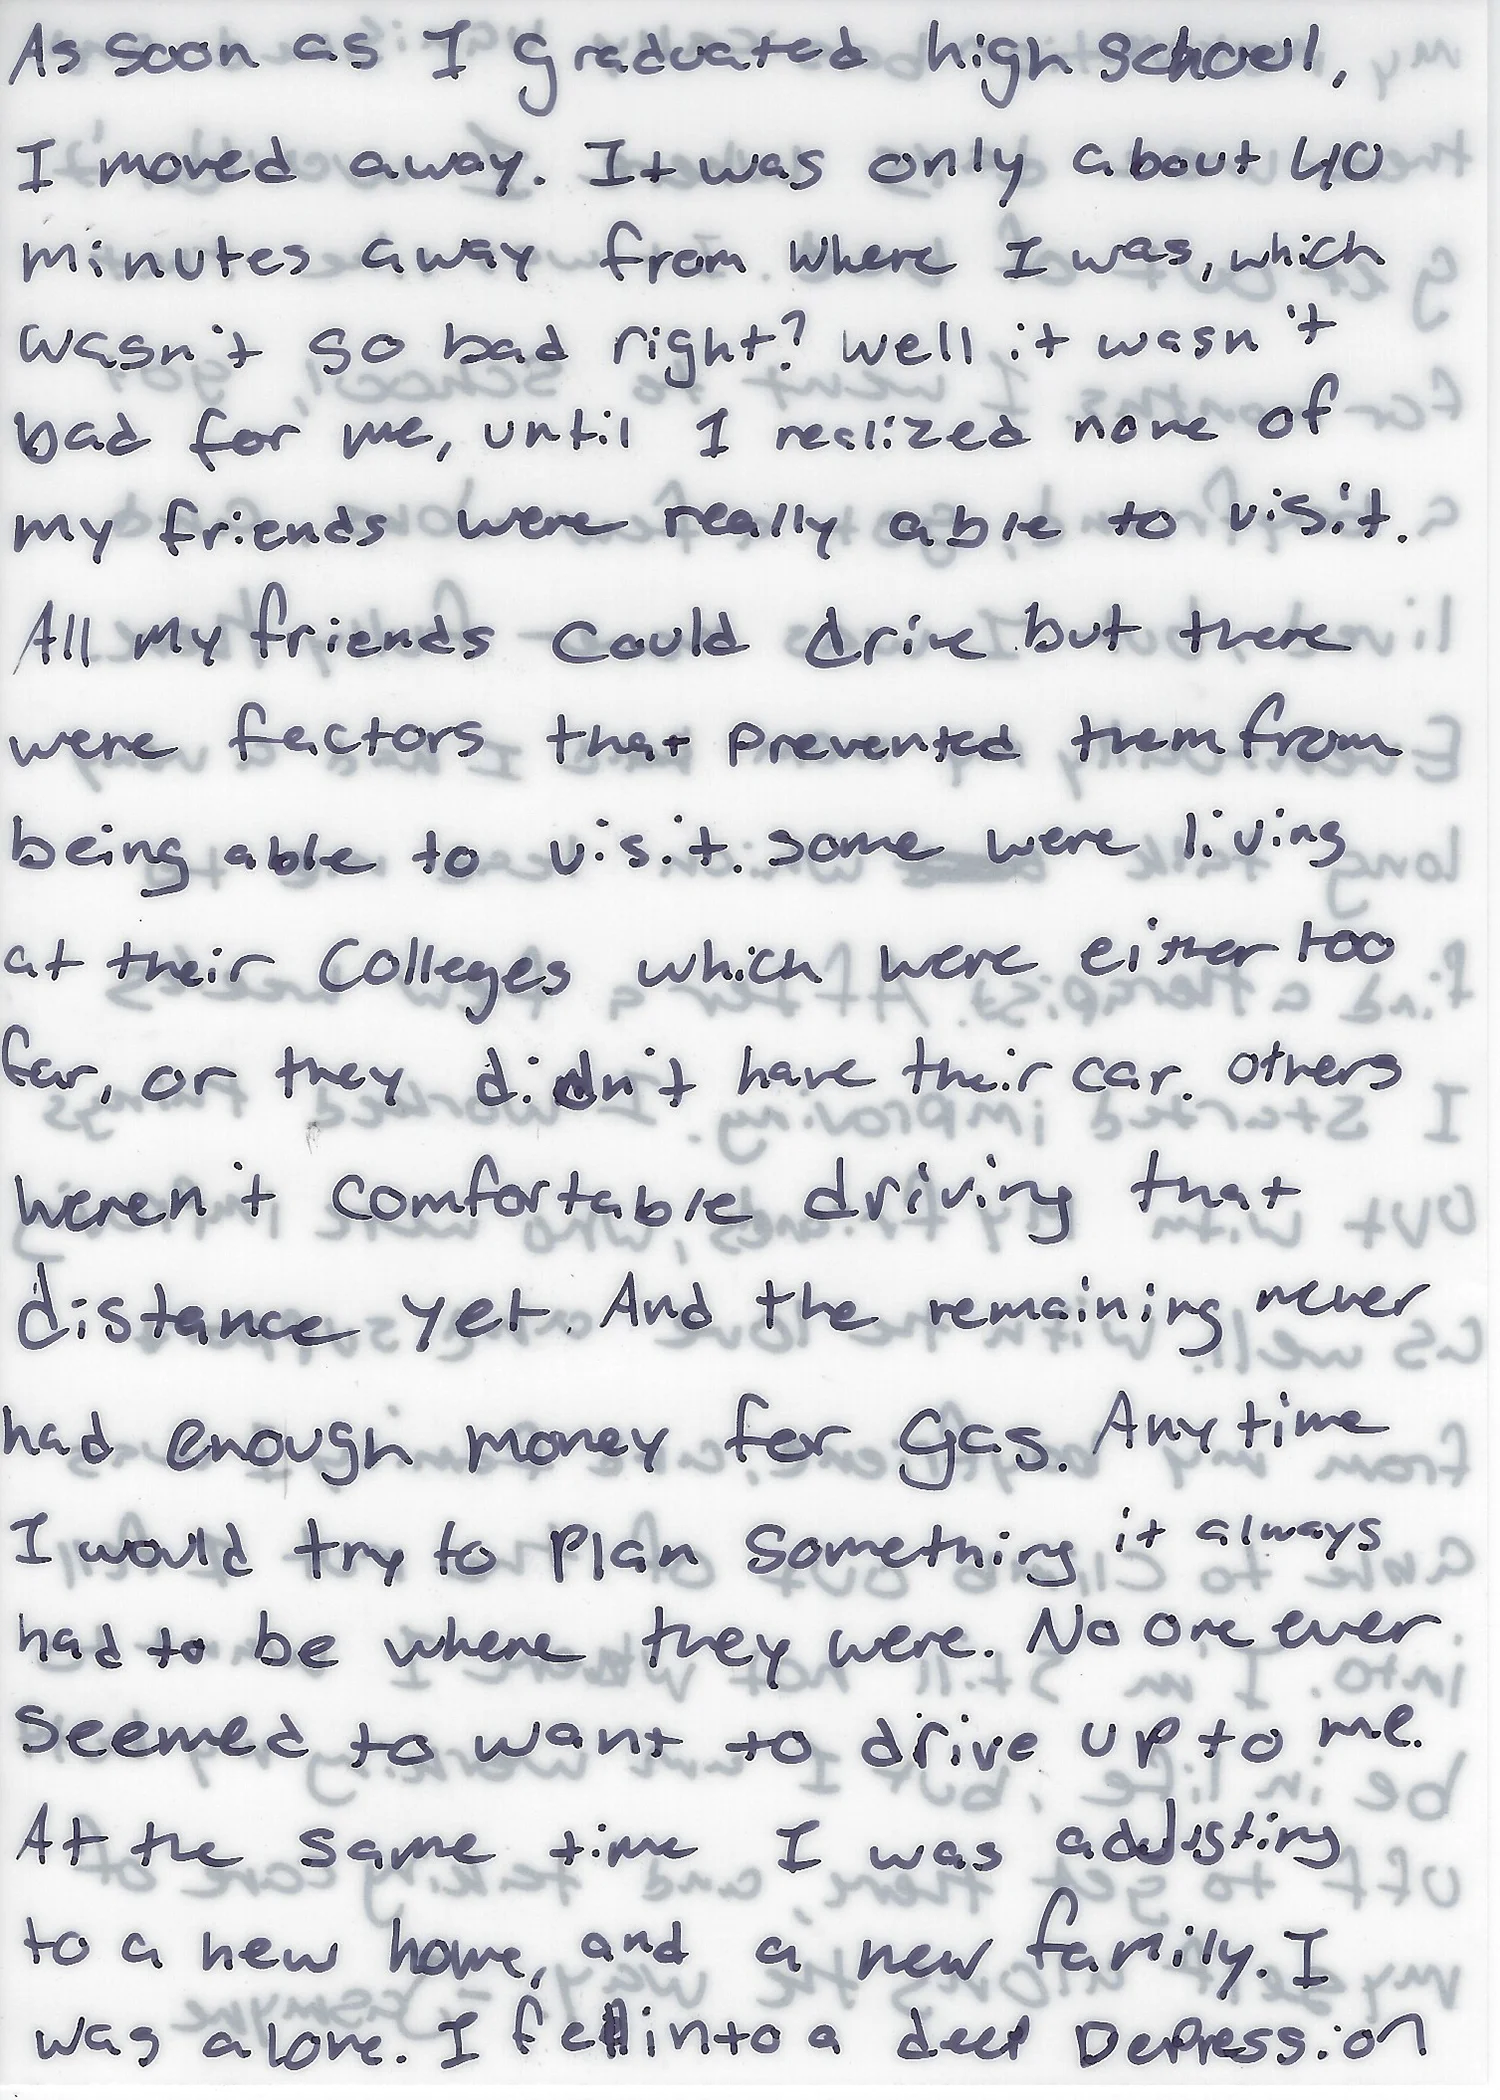 As soon as I graduated high school,
I moved away. It was only about 40
minutes away from where I was, which
wasn't so bad right? well it wasn't
bad for me, until I realized none of
my friends were really able to visit.
All my friends could drive but there
were factors that prevented them from
being able to visit. some were living
at their colleges which were either too
far, or they didn't have their car. others
weren't comfortable driving that
distance yet. And the remaining never
had enough money for gas. Any time
I would try to plan something it always
had to be where they were. No one ever
seemed to want to drive up to me.
At the same time I was addjsting
to a new home, and a new family. I
was alone. I fell into a deep Depression